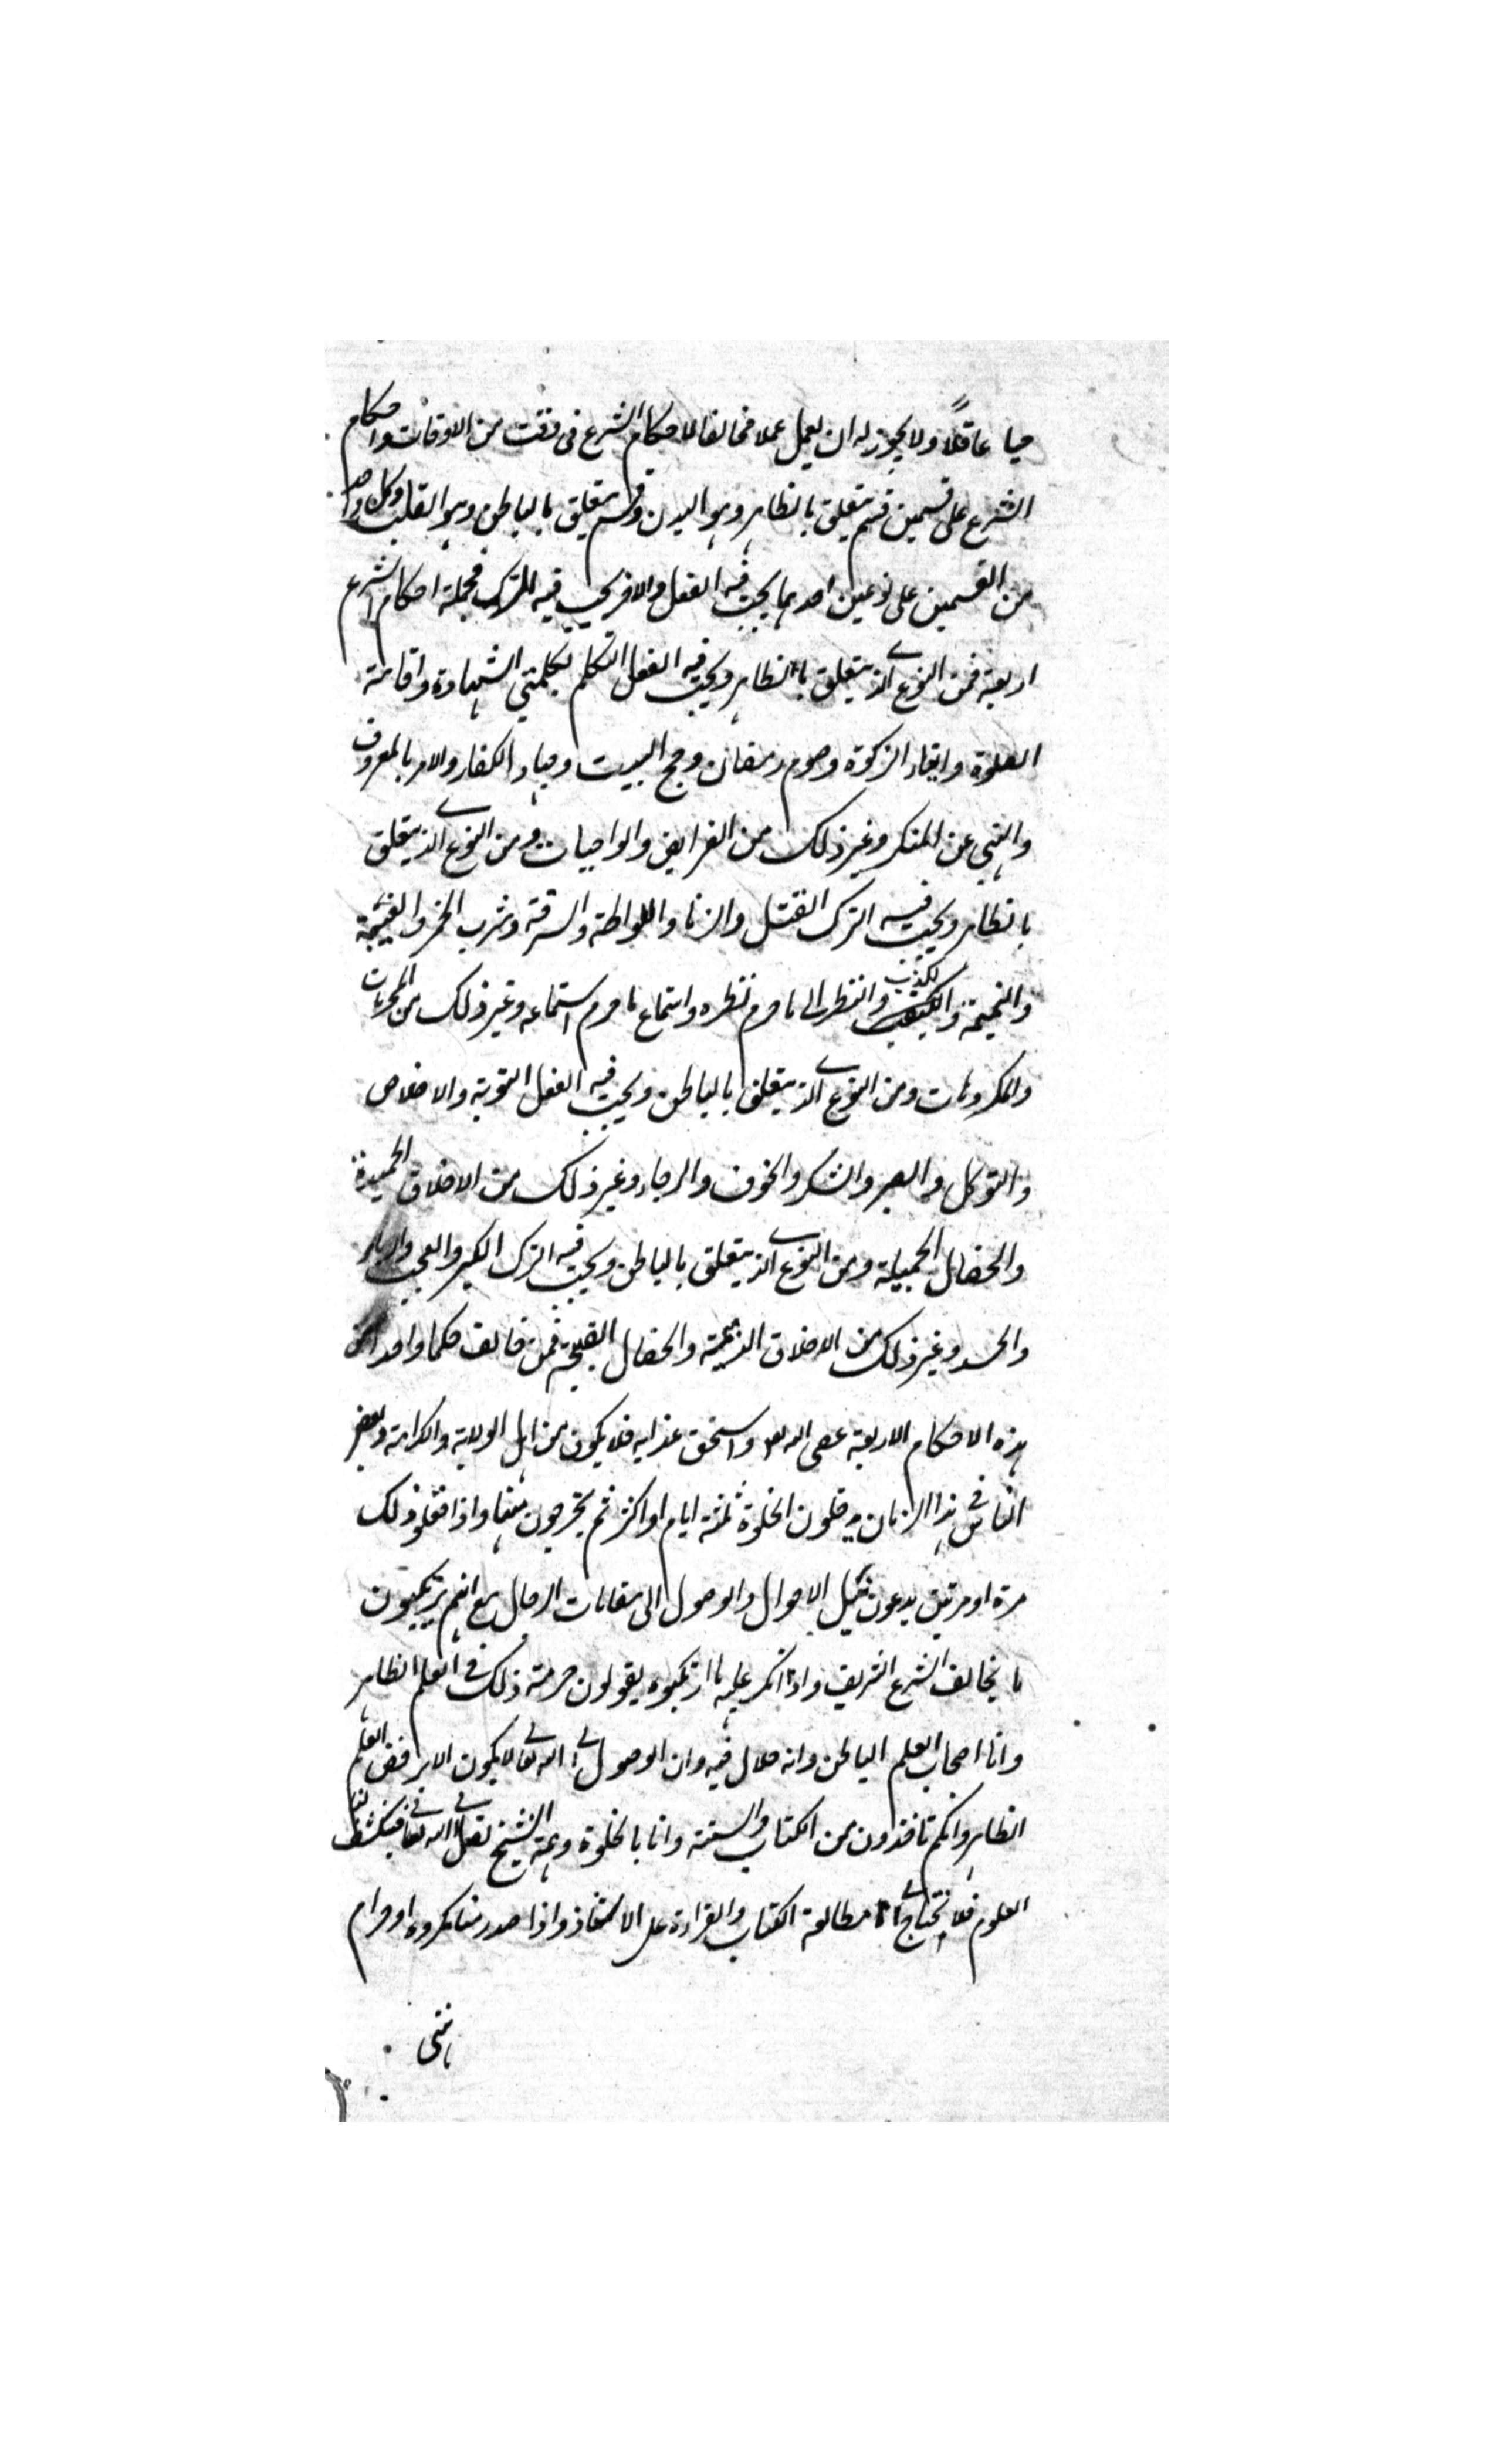 حيا عاقلاً ولا يجوز له ان يعمل عملا مخالفا لاحكام الشرع فى وقت من الاوقات واحكام
الشرع على قسمين قسم يتعلق بالظاهر وهو البدن وقسم يتعلق بالباطن وهو القلب وكل واحد
من القسمين على نوعين احدهما يجب فيه الفعل والاخر يجب فيه الترك فجملة احكام الشرع
اربعة فمن النوع الذى يتعلق بالظاهر ويجب فيه الفعل التكلم بكلمتى الشهادة واقامة
الصلوة وايتاء الزكوة وصوم رمضان وحج البيت وجهاد الكفار والامر بالمعروف
والنهى عن المنكر وغير ذلك من الفرايض والواجبات ومن النوع الذى يتعلق
بالظاهر ويجب فيه الترك القتل والزنا واللواطة والسرقة وشرب الخمر والغيبة
والنميمة والكذب والنظر الى ما حرم نظره واستماع ما حرم استماعه وغير ذلك من المحرمات
والمكروهات ومن النوع الذى يتعلق بالباطن ويجب فيه الفعل التوبة والاخلاص
والتوكل والصبر والشكر والخوف والرجاء وغير ذلك من الاخلاق الحميدة
والخصال الجميلة ومن النوع الذى يتعلق بالباطن ويجب فيه الترك الكبر والعجب والرياء
والحسد وغير ذلك من الاخلاق الذميمة والخصال القبيحة فمن خالف حكما واحدا من
هذه الاحكام الاربعة عصى الله واستحق عذابه فلا يكون من اهل الولاية والكرامة وبعض
الناس فى هذا الزمان يدخلون الخلوة ثلثة ايام او اكثر ثم يخرجون منها واذا فعلوا ذلك
مرة او مرتين يدعون تكميل الاحوال والوصول الى مقامات الرجال مع انهم يرتكبون
ما يخالف الشرع الشريف واذا انكر عليهم ما ارتكبوه يقولون حرمة ذلك فى العلم الظاهر
وانا اصحاب العلم الباطن وانه حلال فيه وان الوصول الى الله تعالى لا يكون الا برفض العلم
الظاهر وانكم تاخذون من الكتاب والسنة وانا بالخلوة وهمة الشيخ نصل الى الله تعالى فينكشف لنا
العلوم فلا نحتاج الى مطالعة الكتاب والقراءة على الاستاذ واذا صدر منا مكروه او حرام
ننهى